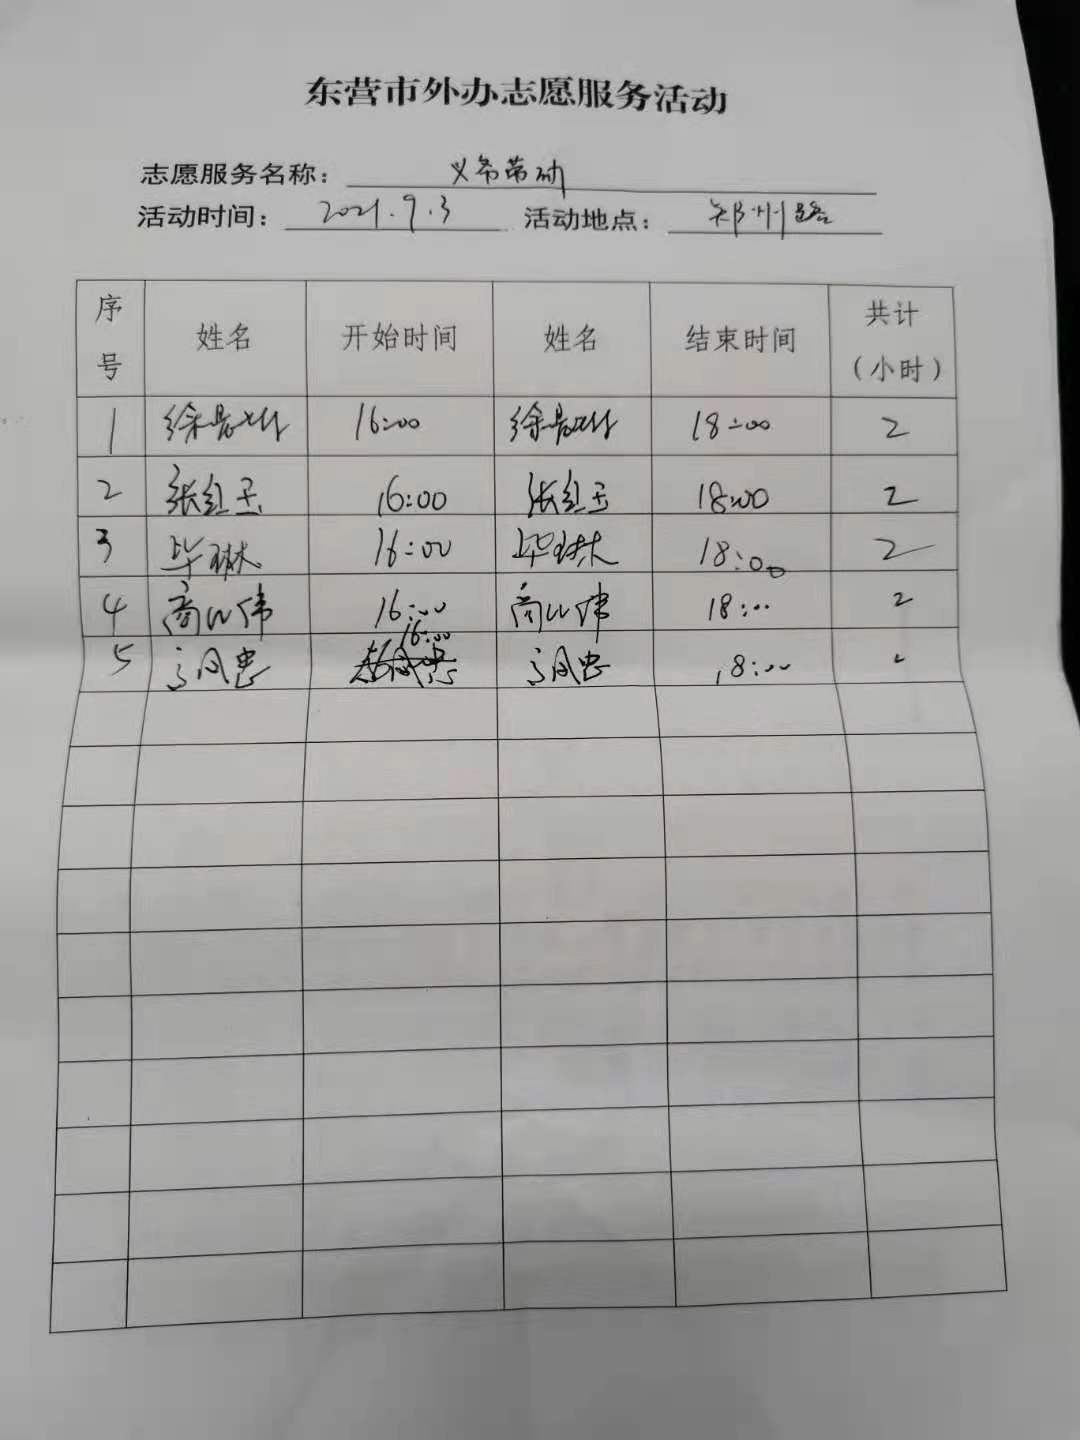 东营市外办志愿服务活动
志愿服务名称： 义务劳动
活动时间： 2021.9.3 活动地点： 郑州路
序号 姓名 开始时间 姓名 结束时间 共计（小时）
1 徐 16:00 徐 18:00 2
2 张红玉 16:00 张红玉 18:00 2
3 毕琳 16:00 毕琳 18:00 2
4 商伟 16:00 商伟 18:00 2
5 凤忠 16:00 凤忠 18:00 2